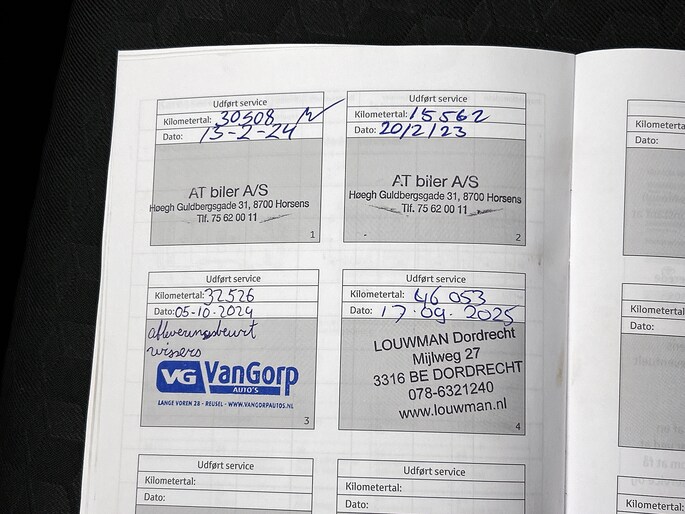 Udført service
Kilometertal: 30508
Dato: 13-2-24
AT biler A/S
Høegh Guldbergsgade 31, 8700 Horsens
Tlf. 75 62 00 11
1
Udført service
Kilometertal: 15562
Dato: 20/2/23
AT biler A/S
Høegh Guldbergsgade 31, 8700 Horsens
Tlf. 75 62 00 11
2
Udført service
Kilometertal: 32526
Dato: 05-10-2024
afleveringsbeurt
wissers
VG VanGorp
AUTO'S
LANGE VOREN 28 - REUSEL - WWW.VANGORPAUTOS.NL
3
Udført service
Kilometertal: 46 053
Dato: 17.09.2025
LOUWMAN Dordrecht
Mijlweg 27
3316 BE DORDRECHT
078-6321240
www.louwman.nl
4
Udført service
Kilometertal:
Dato:
Udført service
Kilometertal:
Dato:
Dato:
Dato: